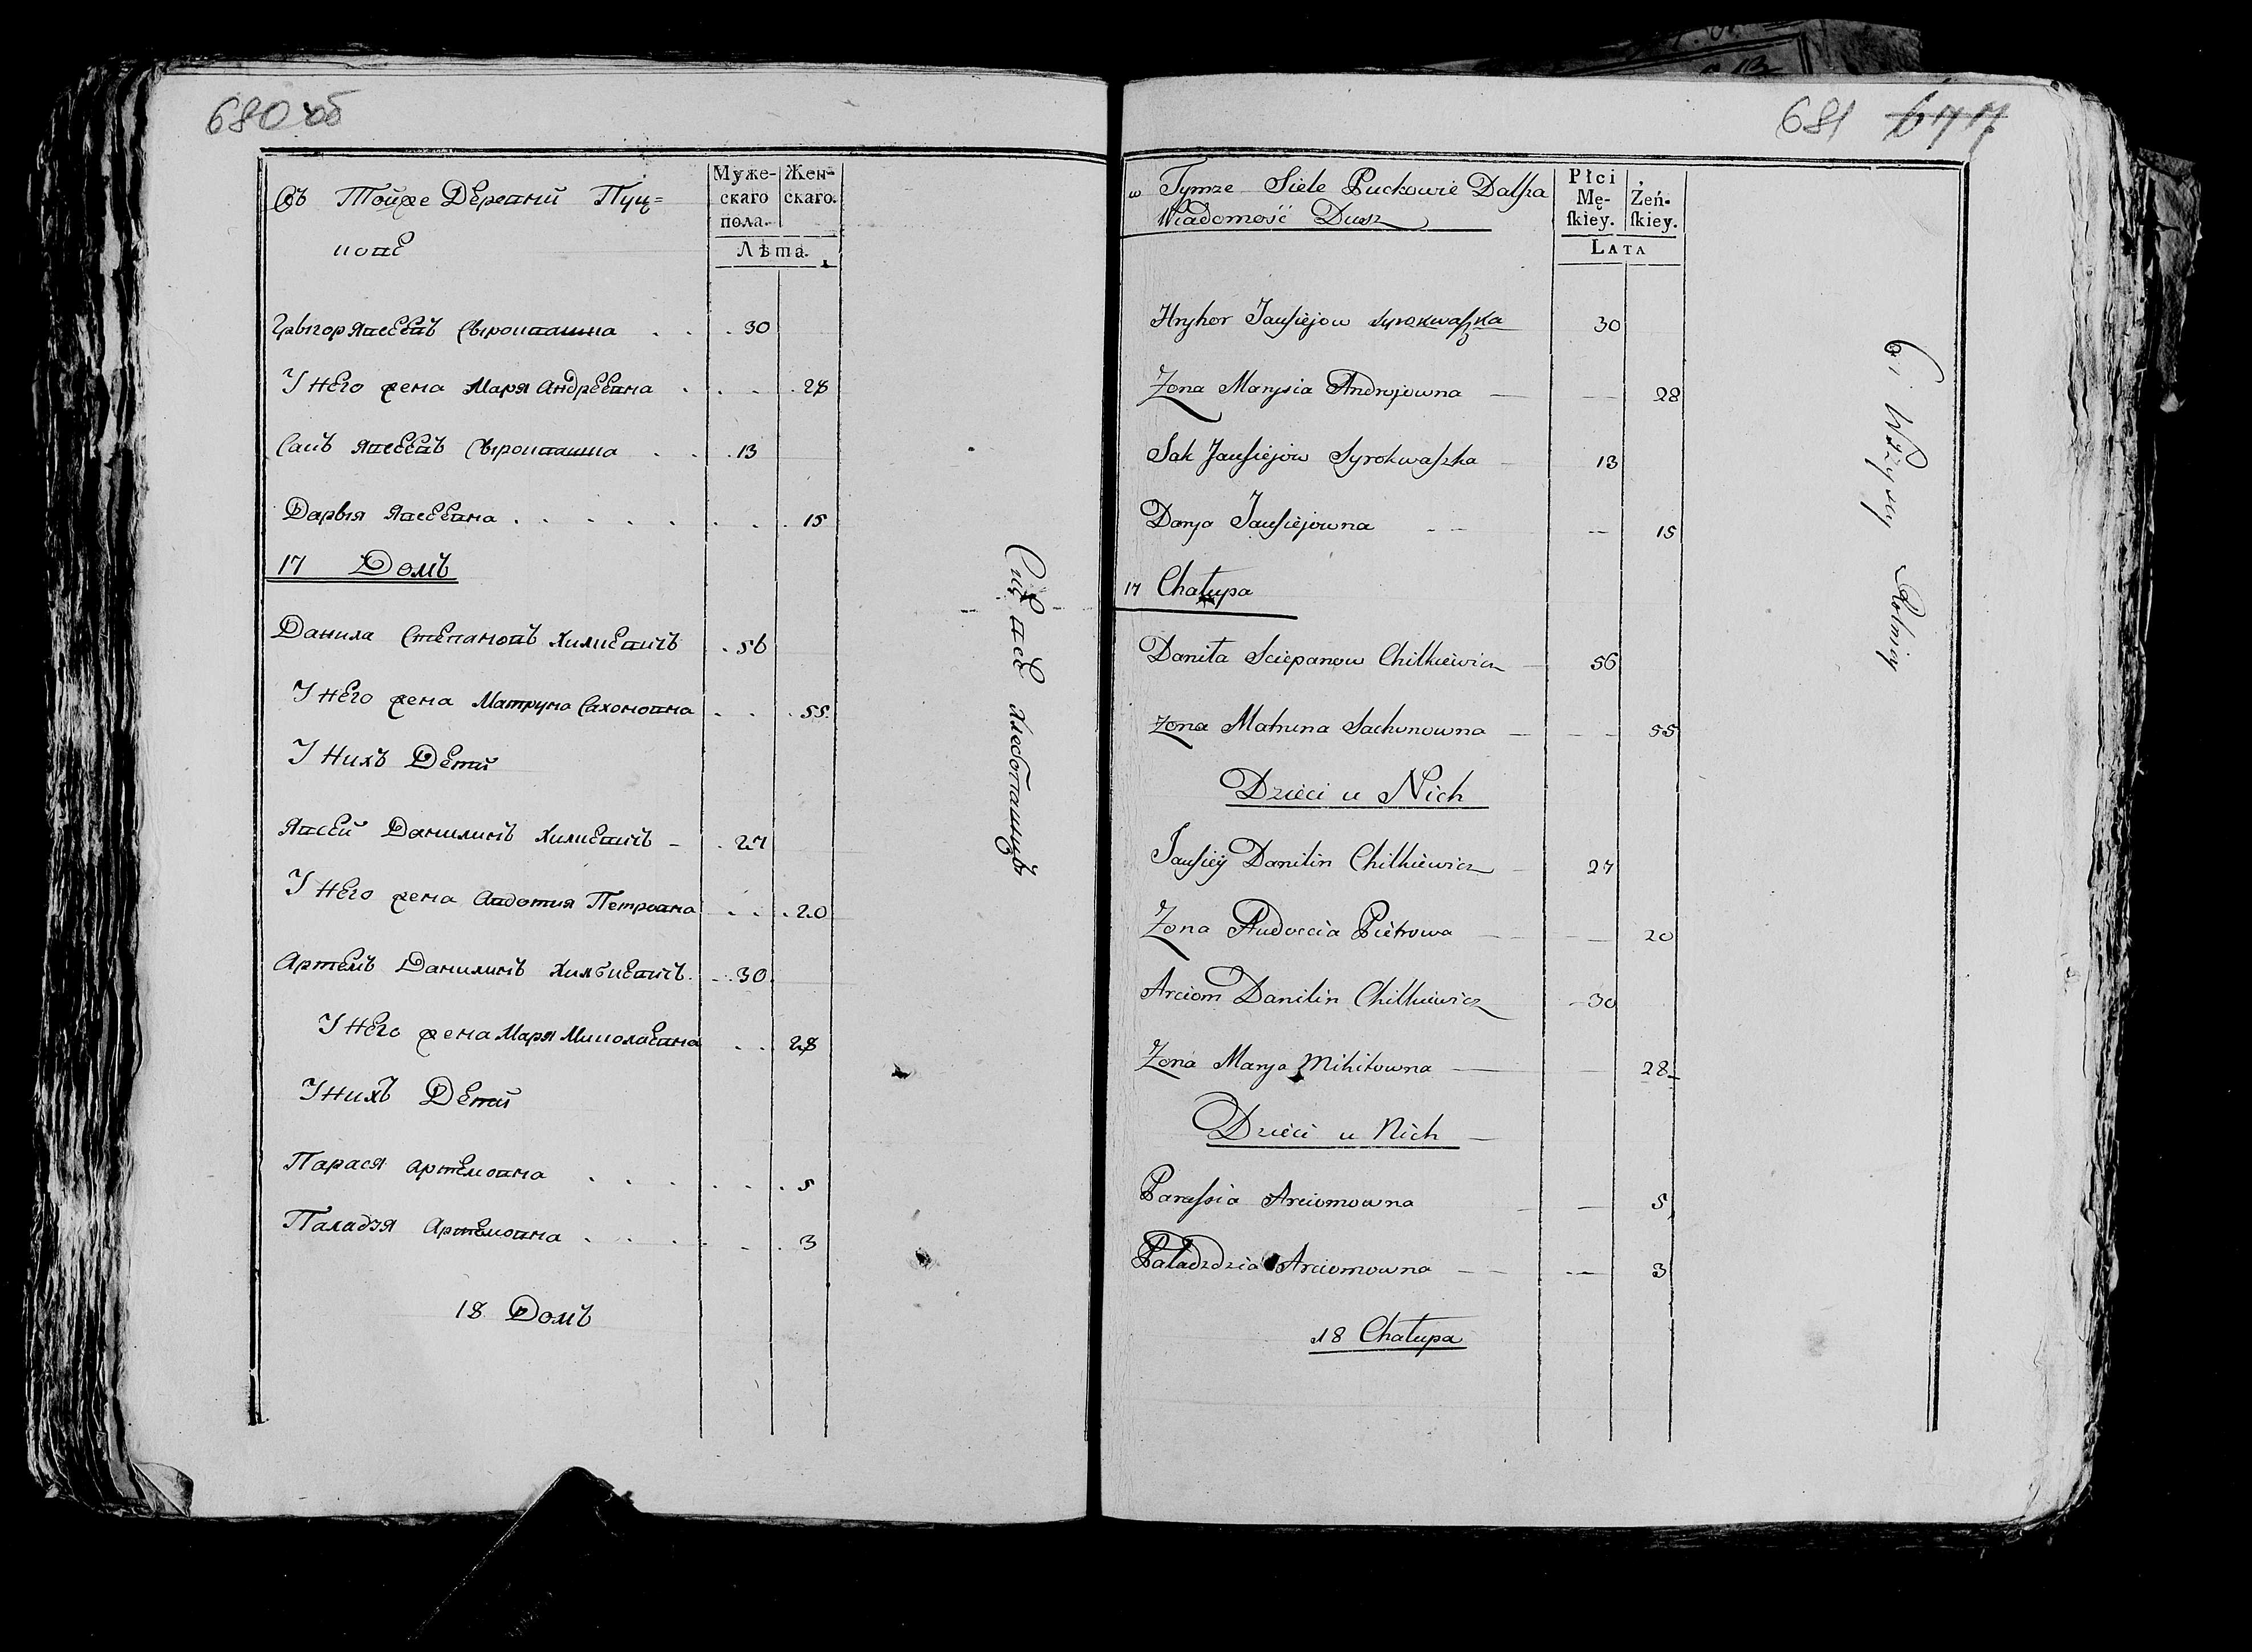 680 об
Въ Тойже Деревни Пуц=
кове
Муже-
скаго
пола.
Жен-
скаго.
Лѣта.
Грыгор Явсеевъ Сыроквашка 30
У него жена Маря Андреевна 28
Сакъ Явсеевъ Сыроквашка 13
Дарыя Явсеевна 15
17 Домъ
Данила Степановъ Хилкевичъ 56
У него жена Матруна Сахоновна 55
У нихъ Дети
Явсей Данилинъ Хилкевичъ 27
У него жена Авдотия Петровна 20
Артемъ Данилинъ Хилькевичъ 30
У него жена Маря Миколаевна 28
У нихъ Дети
Парася Артемовна 5
Паладзя Артемовна 3
18 Домъ
Сиі все Хлебопашцы
681 677
w Tymze Siele Puckowie Dalsza
Wiadomość Dusz
Płci
Mę-
skiey.
Żeń-
skiey.
LATA
Hryhor Jausiejow Syrokwaszka 30
Zona Marysia Andrejowna 28
Sak Jausiejow Syrokwaszka 13
Darja Jausiejowna 15
17 Chałupa
Daniła Sciepanow Chilkiewicz 56
Zona Matruna Sachonowna 55
Dzieci u Nich
Jausiey Danilin Chilkiewicz 27
Zona Audoccia Pietrowa 20
Arciom Danilin Chilkiewicz 30
Zona Marya Mikitowna 28
Dzieci u Nich
Parassia Arciomowna 5
Paładzdzia Arciomowna 3
18 Chałupa
Ci Wszyscy Rolnicy